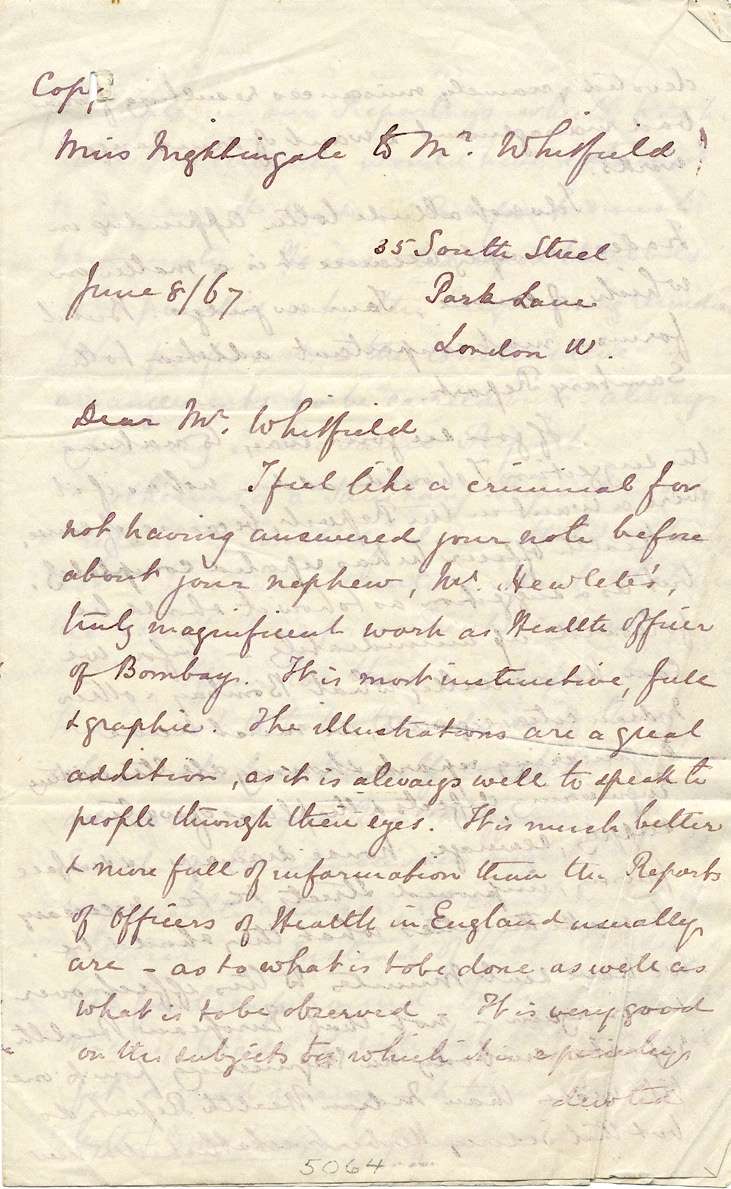 Copy
Miss Nightingale to Mr. Whitfield
35 South Street
June 8/67
Park Lane
London W.
Dear Mr. Whitfield
I feel like a criminal for
not having answered your note before
about your nephew, Mr. Hewlett's,
truly magnificent work as Health Officer
of Bombay. It is most instructive, full
& graphic. The illustrations are a great
addition, as it is always well to speak to
people through their eyes. It is much better
& more full of information than the Reports
of Officers of Health in England usually
are - as to what is to be done as well as
what is to be observed - It is very good
on the subjects to which it is specially
devoted
5064